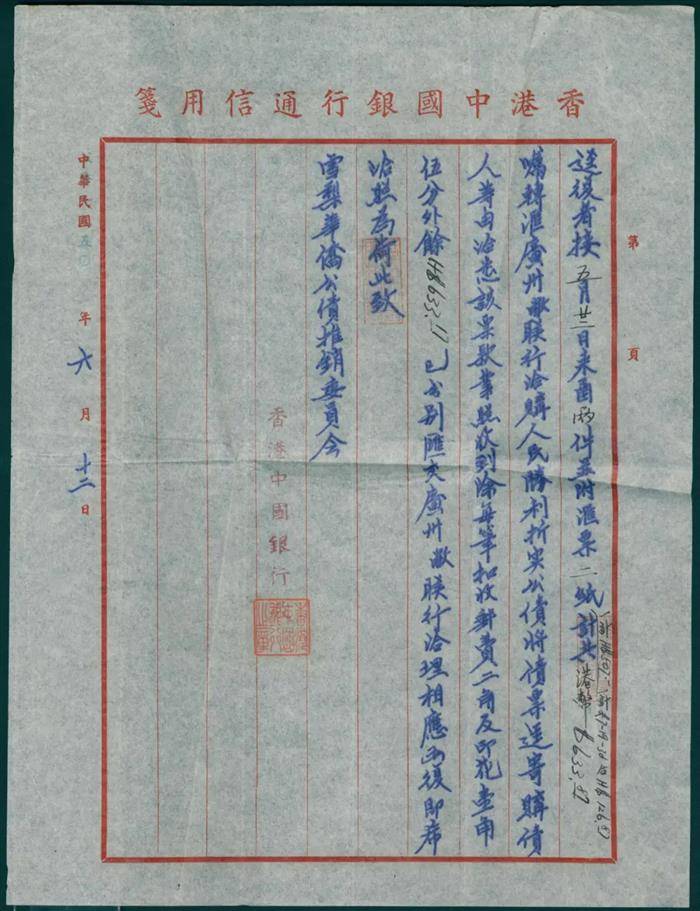 香港中國銀行通信用箋
第 頁
逕復者接五月廿三日來函兩件並附滙票二紙計共港幣$633.87
囑轉滙廣州敝聯行洽購人民勝利折實公債將債票逕寄購債
人等由洽悉該票款業經收到除每筆扣收郵費二角及印花壹角
伍分外餘H$633.17已分别匯交廣州敝聯行洽理相應函復即希
洽照為荷此致
雪梨華僑公債推銷委員会
香港中國銀行
中華民國 年六月十二日